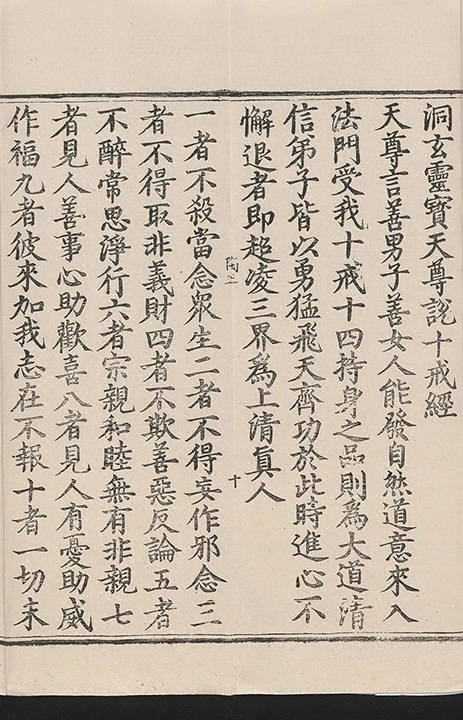 洞玄靈寶天尊說十戒經
天尊言善男子善女人能發自然道意來入
法門受我十戒十四持身之品則爲大道清
信弟子皆以勇猛飛天齊功於此時進心不
懈退者即超凌三界爲上清真人
十
一者不殺當念眾生二者不得妄作邪念三
者不得取非義財四者不欺善惡反論五者
不醉常思淨行六者宗親和睦無有非親七
者見人善事心助歡喜八者見人有憂助威
作福九者彼來加我志在不報十者一切未